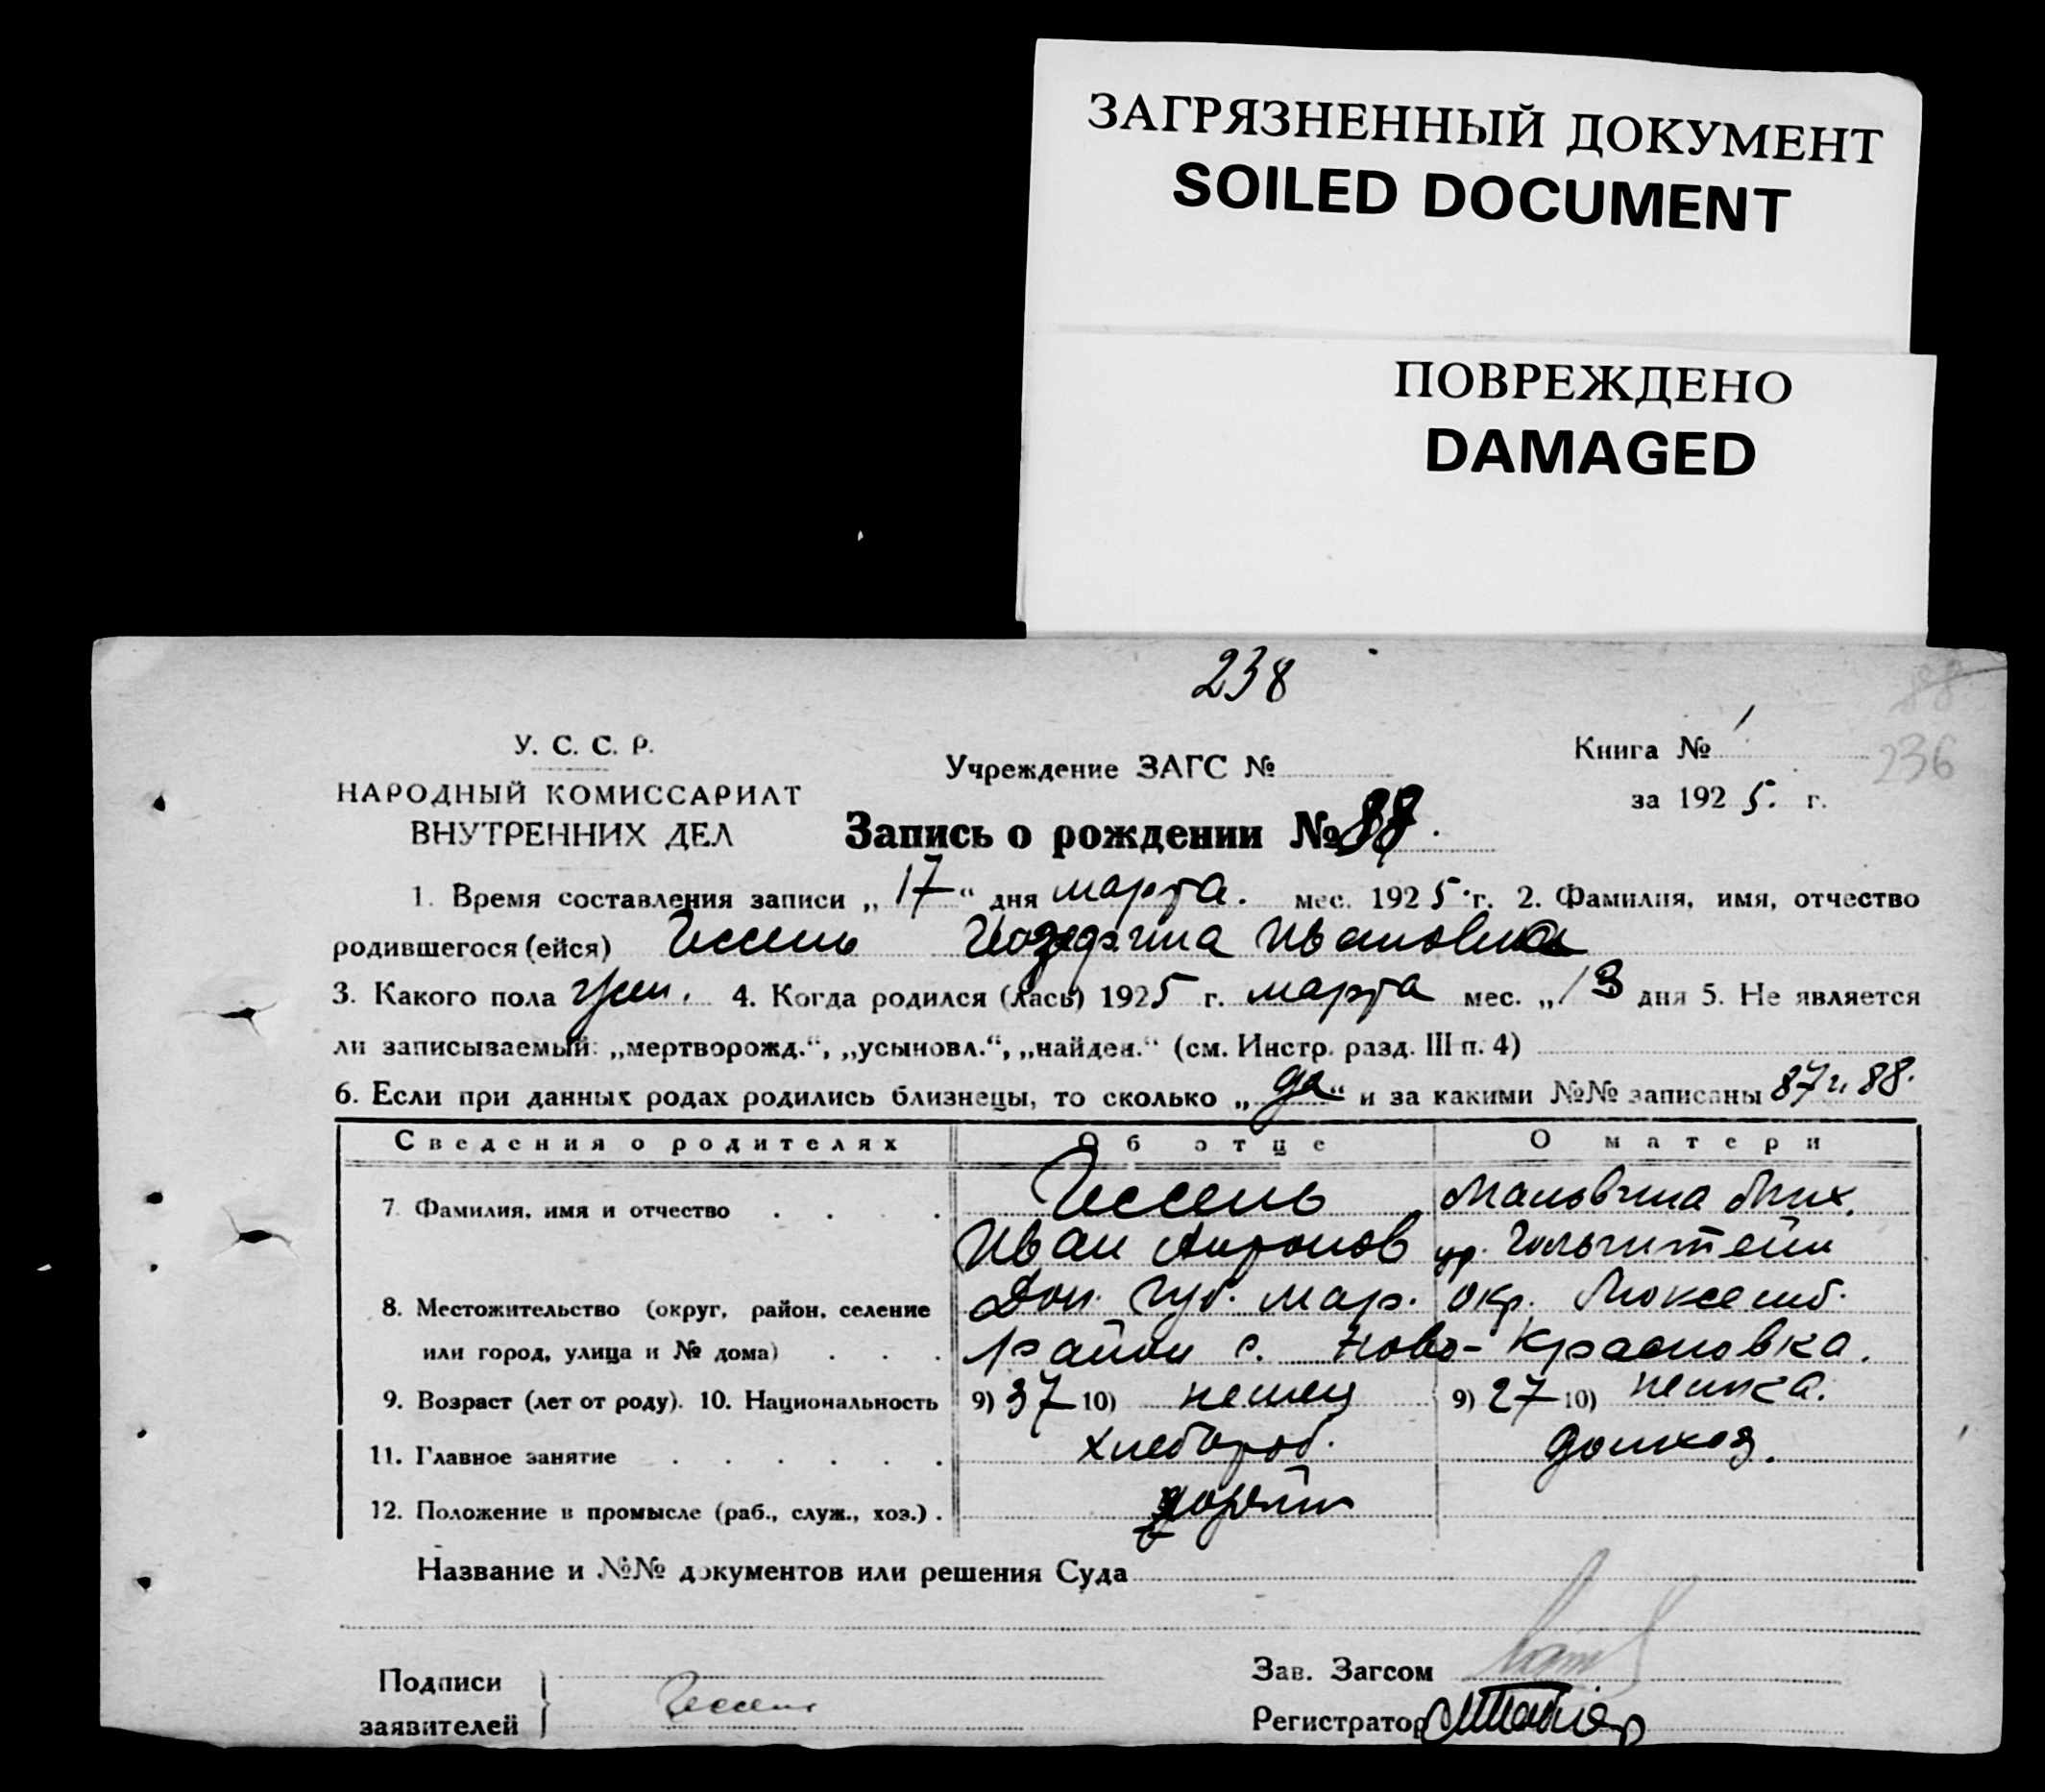 ЗАГРЯЗНЕННЫЙ ДОКУМЕНТ
SOILED DOCUMENT
ПОВРЕЖДЕНО
DAMAGED
238
88
236
У. С. С. Р.
НАРОДНЫЙ КОМИССАРИАТ
ВНУТРЕННИХ ДЕЛ
Учреждение ЗАГС №
Книга № 1
за 1925. г.
Запись о рождении № 88.
1. Время составления записи „17“ дня марта. мес. 1925 г. 2. Фамилия, имя, отчество
родившегося (ейся) Гессень Иозефина Ивановна
3. Какого пола жен. 4. Когда родился (лась) 1925 г. марта мес. „13 дня 5. Не является
ли записываемый: „мертворожд.“, „усыновл.“, „найден.“ (см. Инстр. разд. III п. 4)
6. Если при данных родах родились близнецы, то сколько „да“ и за какими №№ записаны 87 и 88.
Сведения о родителях Об отце О матери
7. Фамилия, имя и отчество Гессень Мальвина Мих.
Иван Антонов ур. Гольштейн
8. Местожительство (округ, район, селение Дон. Губ. Мар. окр. Люксемб.
или город, улица и № дома) район с. Ново-Красновка.
9. Возраст (лет от роду). 10. Национальность 9) 37 10) немец 9) 27 10) немка.
11. Главное занятие хлебороб. домхоз.
12. Положение в промысле (раб., служ., хоз.)
Название и №№ документов или решения Суда
Подписи
заявителей Гессень
Зав. Загсом
Регистратор